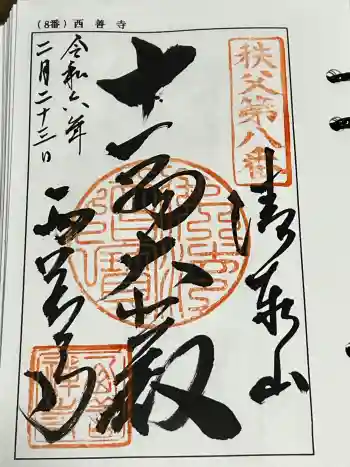 (8番) 西善寺
秩父第八番
清泰山
十一面大士殿
西善寺
令和六年
二月二十三日